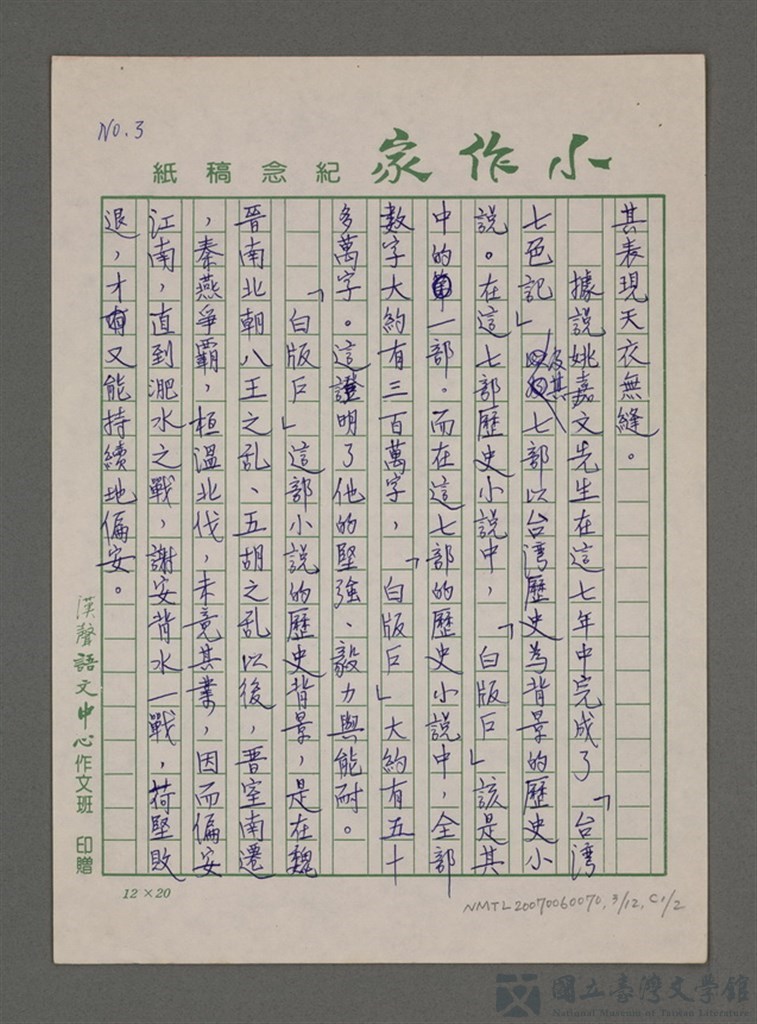 No.3
小作家
紀念稿紙
其表現天衣無縫。
據說姚嘉文先生在這七年中完成了「台湾
七色記」七部以台湾歷史為背景的歷史小
說。在這七部歷史小說中，「白版戶」該是其
中的一部。而在這七部的歷史小說中，全部
數字大約有三百萬字，「白版戶」大約有五十
多萬字。這證明了他的堅強、毅力與能耐。
「白版戶」這部小說的歷史背景，是在魏
晉南北朝八王之乱、五胡之乱以後，晋室南遷
，秦燕爭霸，桓溫北伐，未竟其業，因而偏安
江南，直到淝水之戰，謝安背水一戰，苻堅敗
退，才又能持續地偏安。
漢聲語文中心作文班 印贈
12×20
NMTL20070060070, 3/12, C1/2
國立臺灣文學館
National Museum of Taiwan Literature